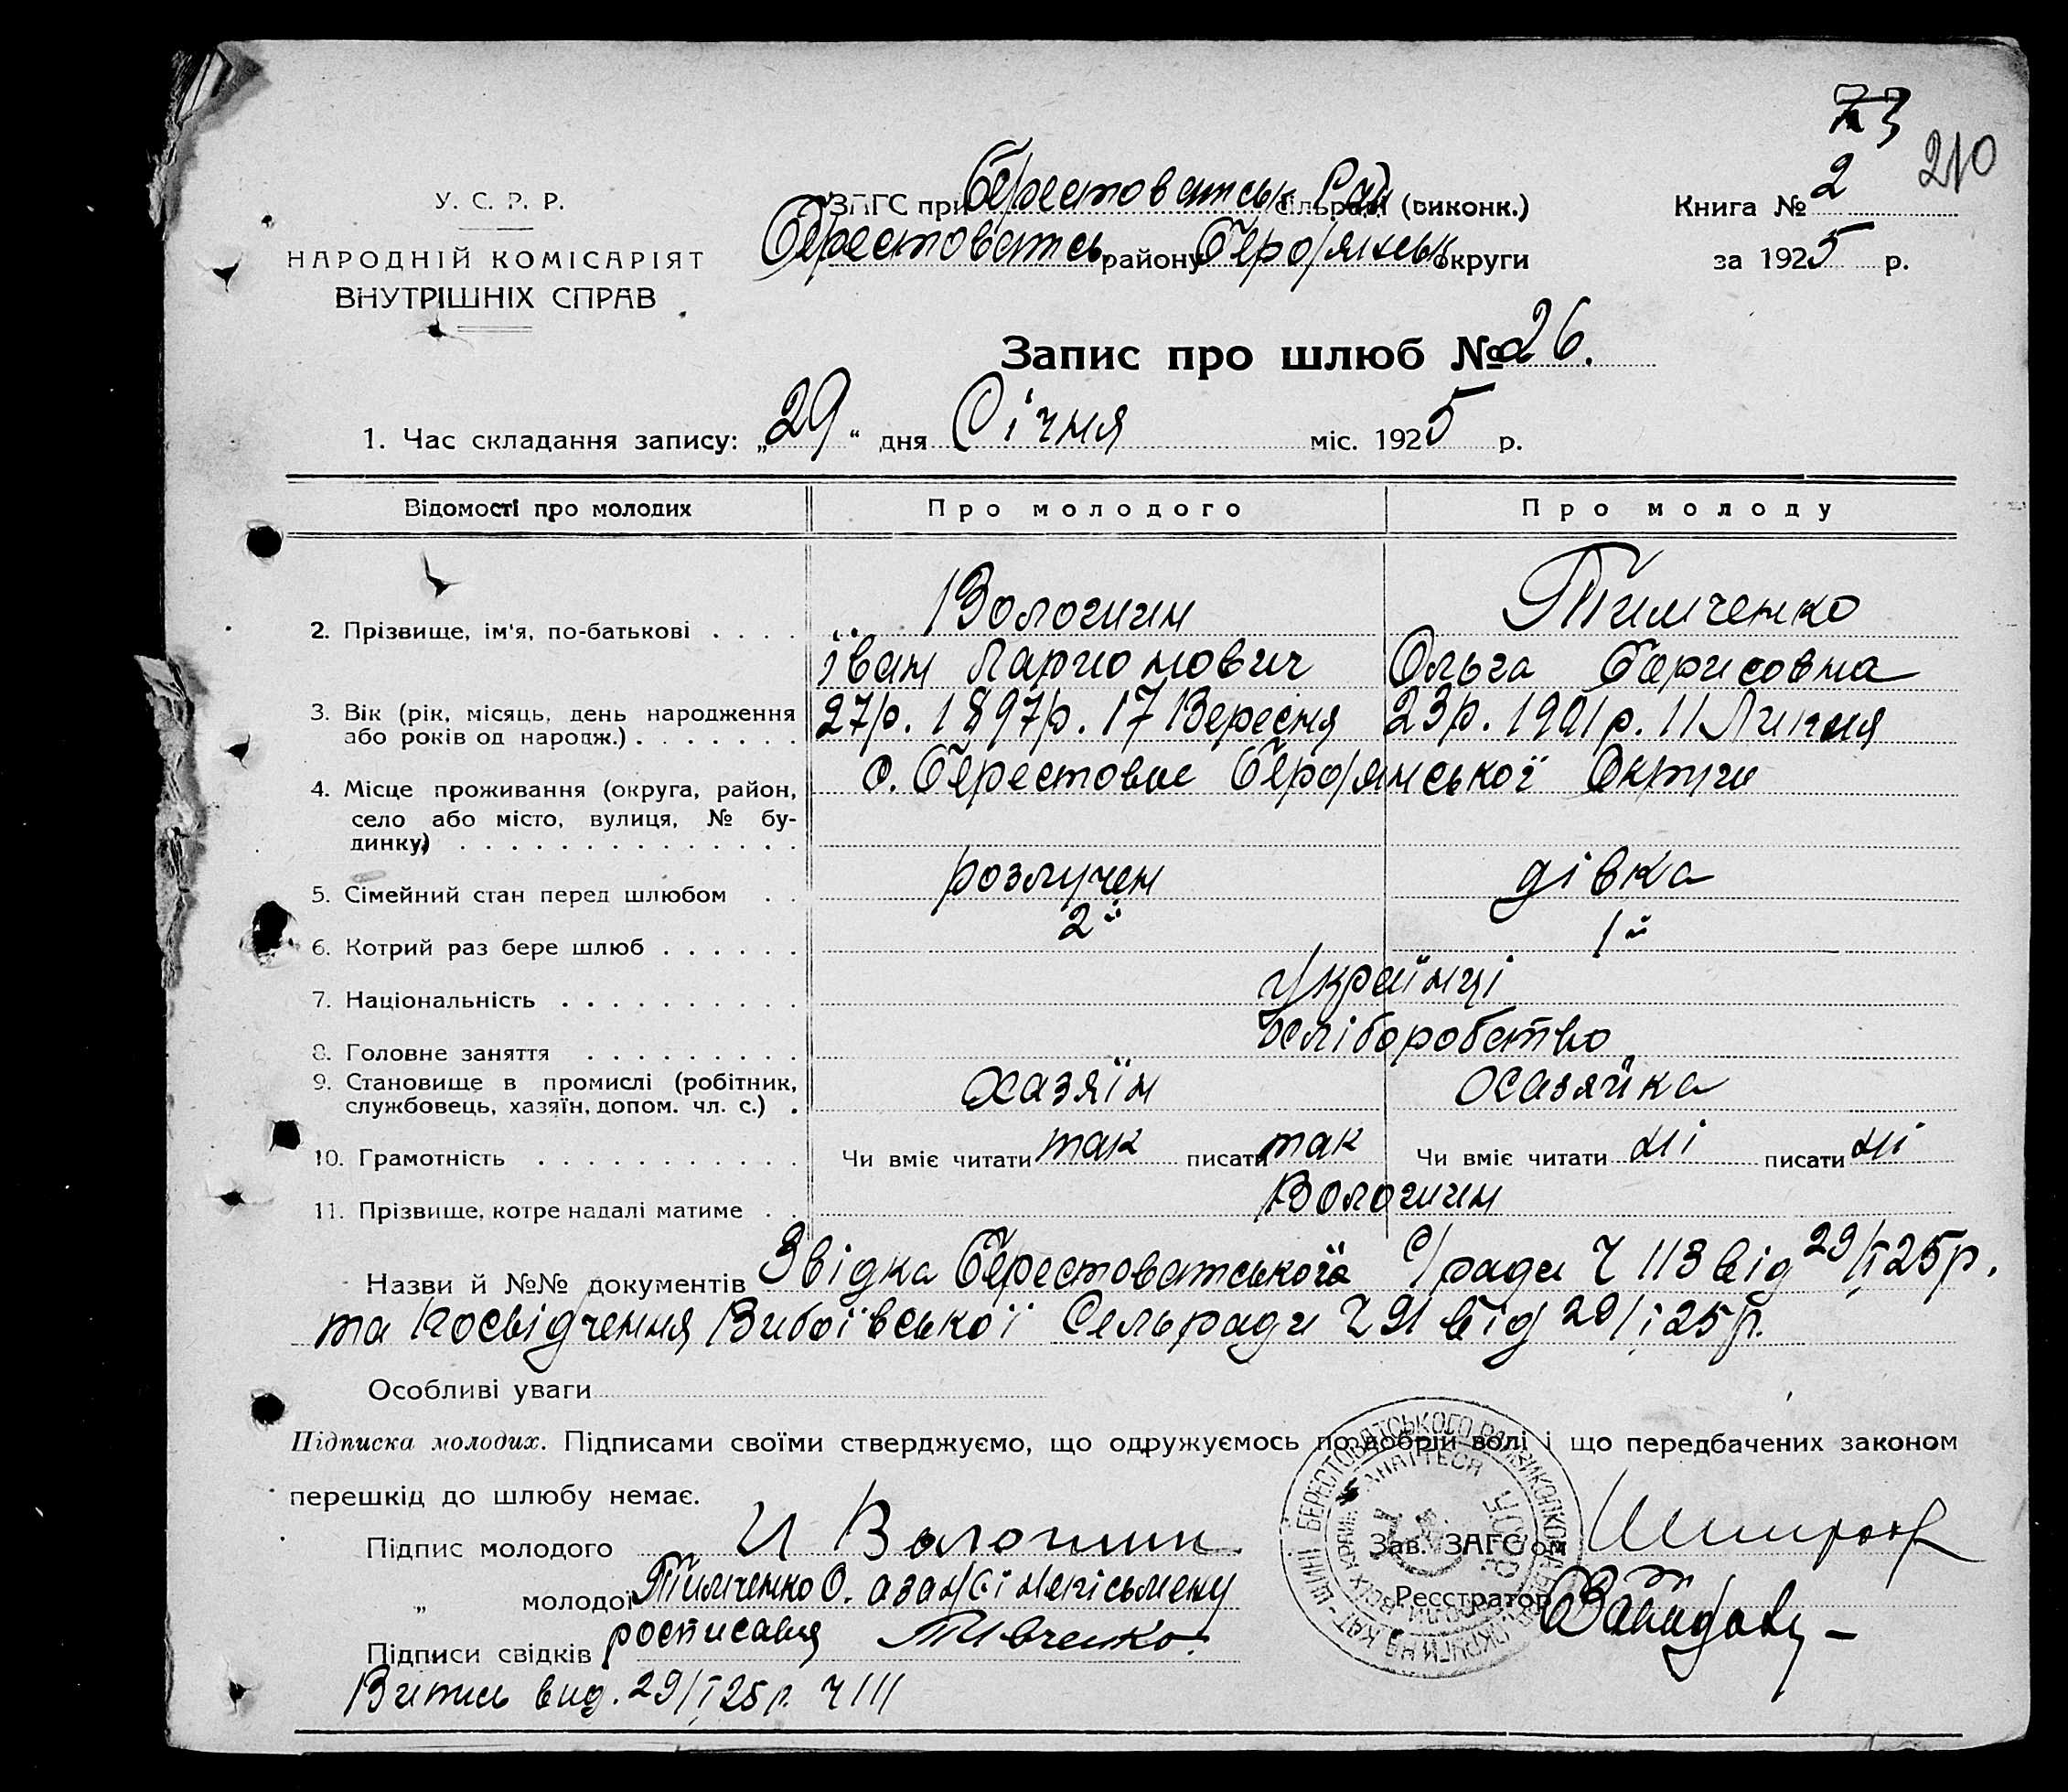 73
210
У. С. Р. Р.
НАРОДНІЙ КОМІСАРІЯТ
ВНУТРІШНІХ СПРАВ
ЗАГС при Берестоватськ. Рай сільради (виконк.)
Берестоватськ району Бердянськ округи
Книга № 2
за 1925 р.
Запис про шлюб № 26.
1. Час складання запису: „29“ дня Січня міс. 1925 р.
Відомості про молодих Про молодого Про молоду
2. Прізвище, ім'я, по-батькові Вологин Тимченко
Іван Ларионович Ольга Борисовна
3. Вік (рік, місяць, день народження або років од народж.) 27р. 1897р. 17 Вересня 23р. 1901р. 11 Липня
4. Місце проживання (округа, район, село або місто, вулиця, № будинку) с. Берестове Бердянської Округи
5. Сімейний стан перед шлюбом розлучен дівка
6. Котрий раз бере шлюб 2й 1й
7. Національність Українці
8. Головне заняття хліборобство
9. Становище в промислі (робітник, службовець, хазяїн, допом. чл. с.) хазяїн хазяйка
10. Грамотність Чи вміє читати так писати так Чи вміє читати ні писати ні
11. Прізвище, котре надалі матиме Вологин
Назви й №№ документів Звідка Берестоватської с/ради Ч 113 від 29/I 25р.
та посвідчення Вибоївської Сельради Ч 91 від 29/I 25р.
Особливі уваги
Підписка молодих. Підписами своїми стверджуємо, що одружуємось по добрій волі і що передбачених законом
перешкід до шлюбу немає.
Підпис молодого И Вологин
Зав. ЗАГС'ом
„ молодої Тимченко О. а за неї неписьмену
Реєстратор
Підписи свідків росписався
Витись вид. 29/I 25р. Ч 111